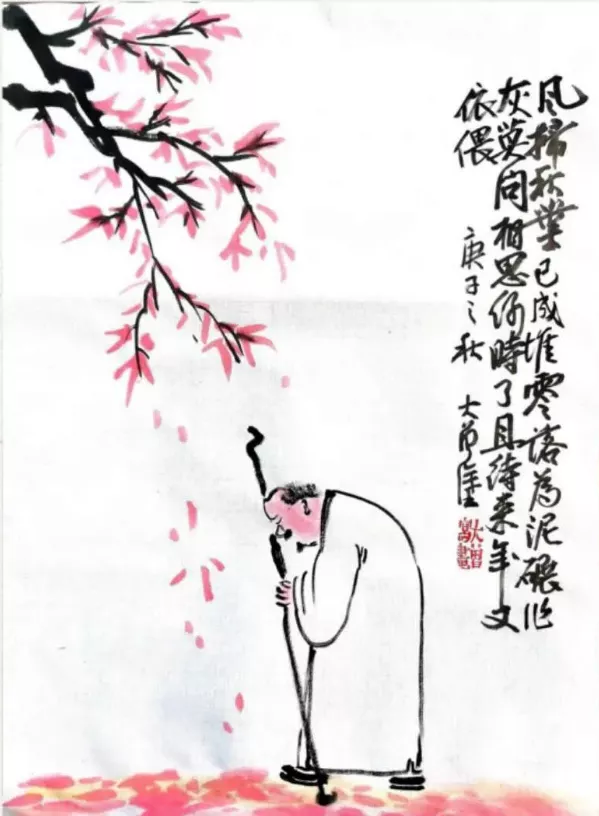 风掃秋葉已成堆零落为泥碾作
灰莫问相思何時了且待来年又
依偎
庚子之秋 大